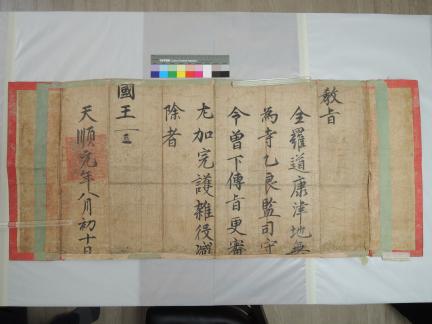 敎旨
全羅道康津地無
爲寺乙良監司守
令曾下傳旨更審
尤加完護雜役減
除者
國王
天順元年八月初十日